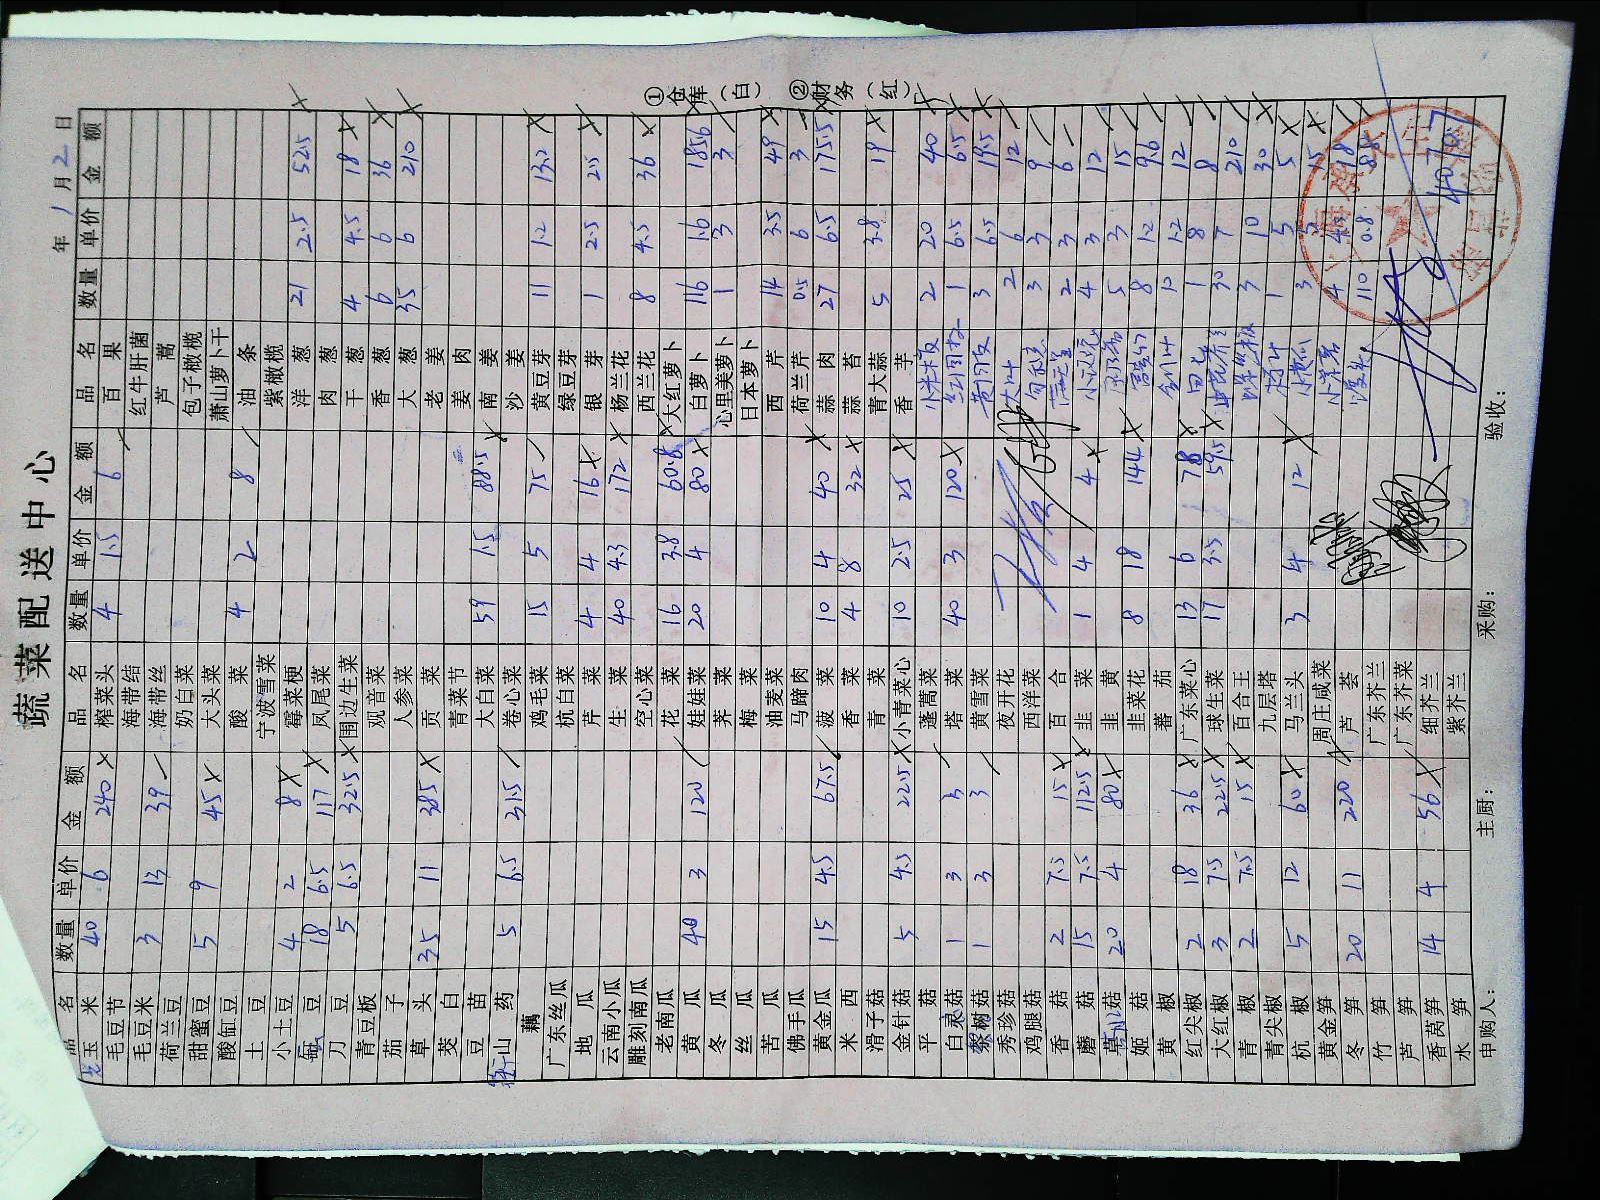 蔬菜配送中心
年 1月2日
品名 数量 单价 金额 品名 数量 单价 金额 品名 数量 单价 金额
玉米 40 6 240 榨菜头 4 1.5 6 百果
毛豆节 海带结 红牛肝菌
毛豆米 3 13 39 海带丝 芦蒿
荷兰豆 奶白菜 包子橄榄
甜蜜豆 5 9 45 大头菜 萧山萝卜干
酸缸豆 酸菜 4 2 8 油条
土豆 宁波雪菜 紫橄榄
小土豆 4 2 8 霉菜梗 洋葱 21 2.5 52.5
豆 18 6.5 117 凤尾菜 肉葱
刀豆 5 6.5 32.5 围边生菜 干葱 4 4.5 18
青豆板 观音菜 香葱 6 6 36
茄子 人参菜 大葱 35 6 210
草头 35 11 385 贡菜 老姜
茭白 青菜节 姜肉
豆苗 大白菜 59 1.5 88.5 南姜
山药 5 6.5 31.5 卷心菜 沙姜
藕 鸡毛菜 15 5 75 黄豆芽 11 1.2 13.2
广东丝瓜 杭白菜 绿豆芽
地瓜 芹菜 4 4 16 银芽 1 2.5 2.5
云南小瓜 生菜 40 4.3 172 杨兰花
雕刻南瓜 空心菜 西兰花 8 4.5 36
老南瓜 花菜 16 3.8 60.8 大红萝卜
黄瓜 40 3 120 娃娃菜 20 4 80 白萝卜 116 1.6 185.6
冬瓜 荠菜 心里美萝卜 1 3 3
丝瓜 梅菜 日本萝卜
苦瓜 油麦菜 西芹 14 3.5 49
佛手瓜 马蹄肉 荷兰芹 0.5 6 3
黄金瓜 15 4.5 67.5 菠菜 10 4 40 蒜肉 27 6.5 175.5
米西 香菜 4 8 32 蒜苔
滑子菇 青菜 青大蒜 5 3.8 19
金针菇 5 4.5 22.5 小青菜心 10 2.5 25 香芋
平菇 蓬蒿菜 小米椒 2 20 40
白灵菇 1 3 3 塔菜 40 3 120 红圆椒 1 6.5 6.5
黎树菇 1 3 3 黄雪菜 黄圆椒 3 6.5 19.5
秀珍菇 夜开花 2 6 12
鸡腿菇 西洋菜 3 3 9
香菇 2 7.5 15 百合 2 3 6
蘑菇 15 7.5 112.5 韭菜 1 4 4 4 3 12
菇 20 4 80 韭黄 5 3 15
姬菇 韭菜花 8 18 144 8 1.2 9.6
黄椒 蕃茄 10 1.2 12
红尖椒 2 18 36 广东菜心 13 6 78 1 8 8
大红椒 3 7.5 22.5 球生菜 17 3.5 59.5 30 7 210
青椒 2 7.5 15 百合王 3 10 30
青尖椒 九层塔 1 5 5
杭椒 5 12 60 马兰头 3 4 12 3 5 15
黄金笋 周庄咸菜 4 18
冬笋 20 11 220 芦荟 110 0.8 88
竹笋 广东芥兰
芦笋 广东芥菜
香莴笋 14 4 56 细芥兰
水笋 紫芥兰 4077
申购人： 主厨： 采购： 验收：
①仓库（白） ②财务（红）